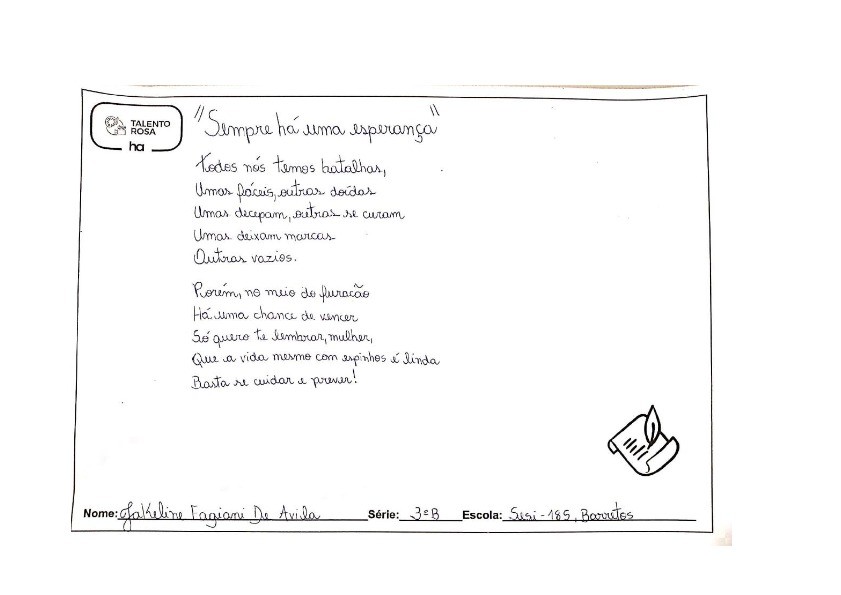 TALENTO
ROSA
ha
"Sempre há uma esperança"
Todos nós temos batalhas,
Umas fáceis, outras doídas
Umas decepam, outras se curam
Umas deixam marcas
Outras vazios.
Porém, no meio do furacão
Há uma chance de vencer
Só quero te lembrar, mulher,
Que a vida mesmo com espinhos é linda
Basta se cuidar e prever!
Nome: Jakeline Fagiani De Avila Série: 3ºB Escola: Sesi - 185, Barretos